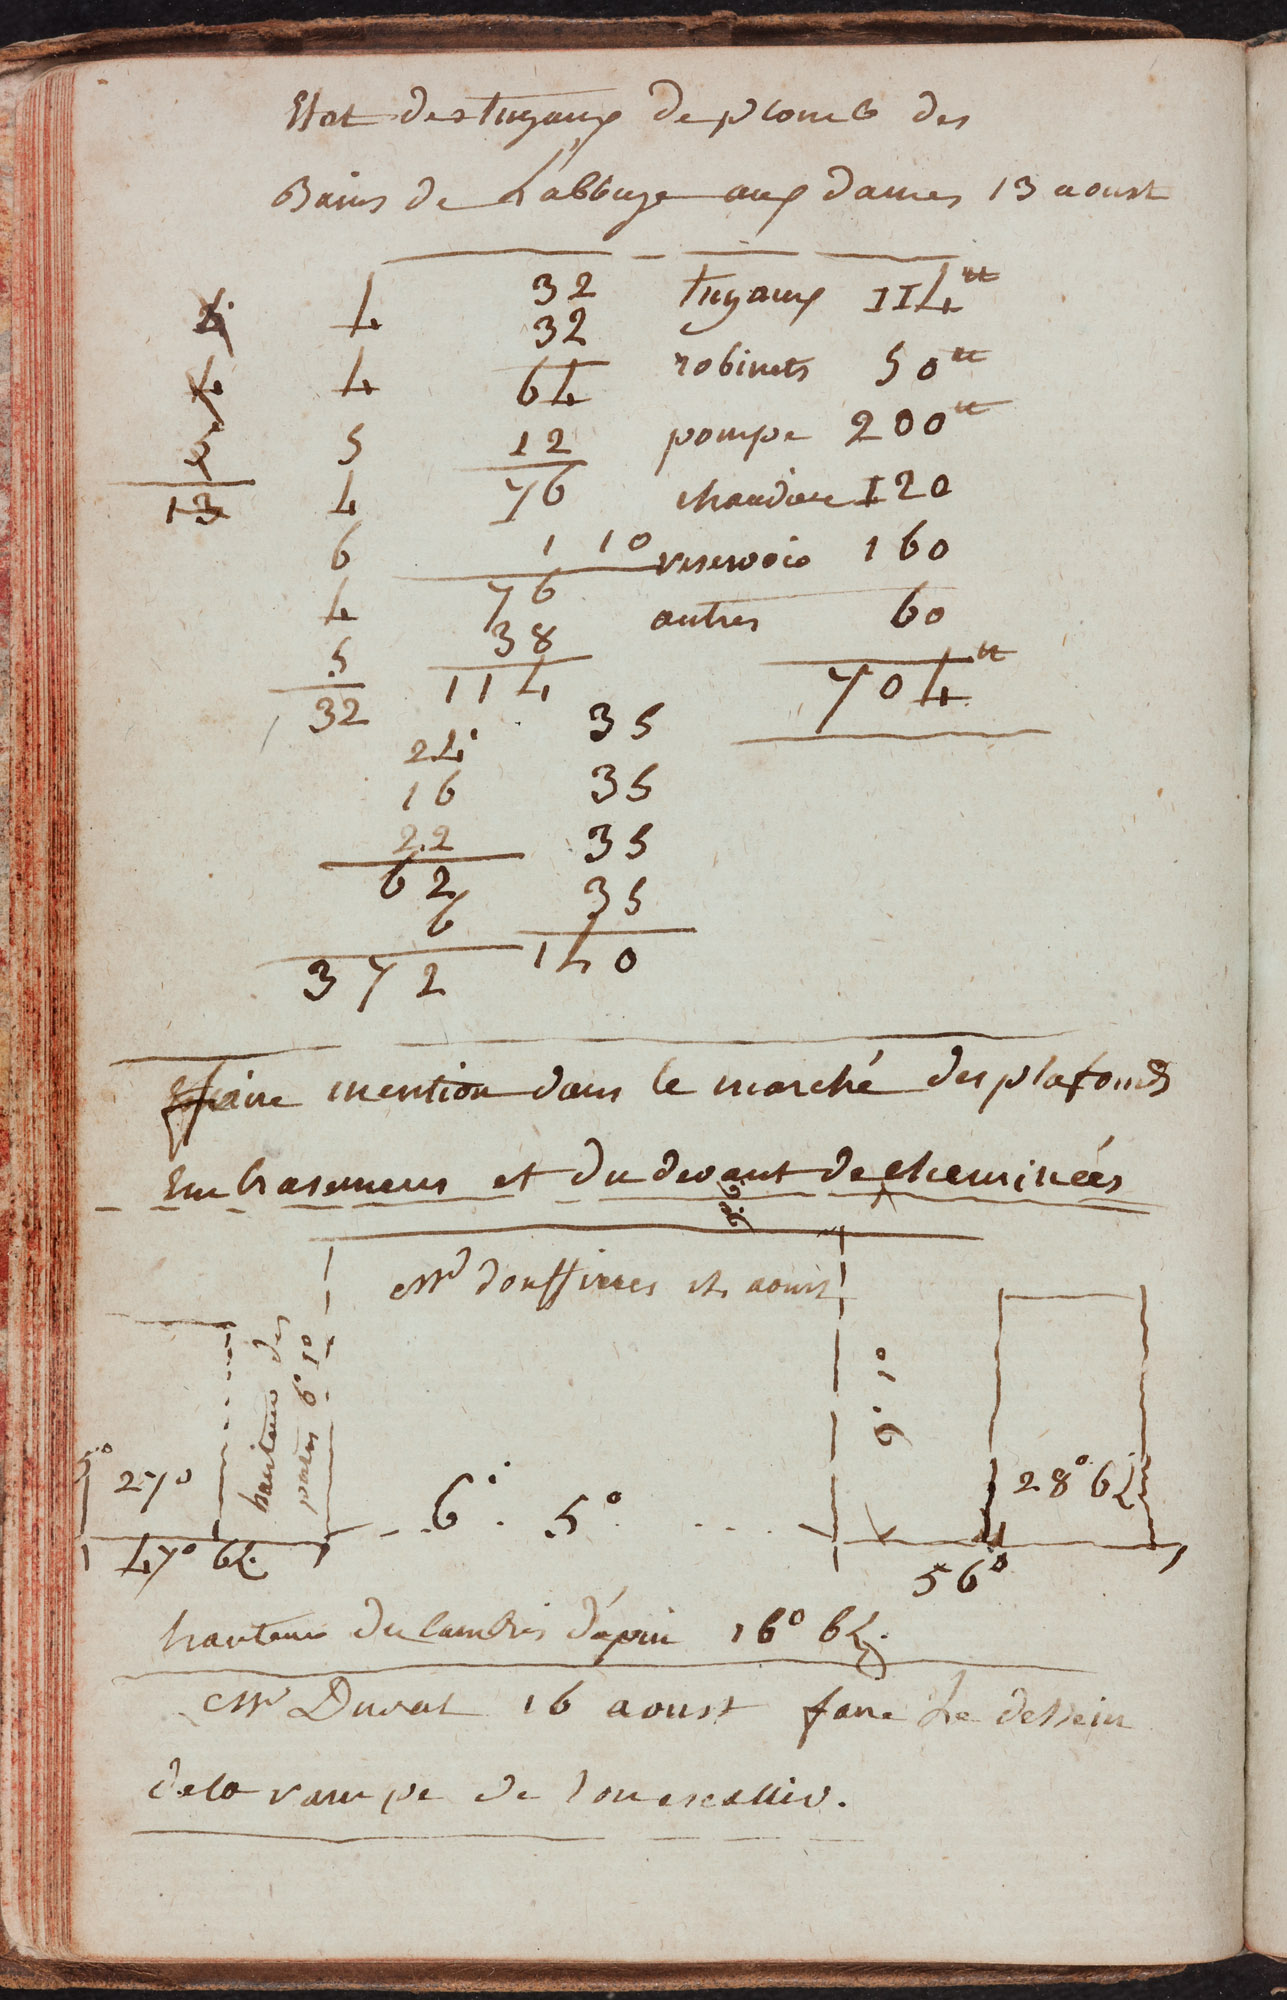 Etat des tuyaux de plomb des
Bains de L'abbaye aux dames 13 aoust
4 32 tuyaux 114tt
32
4 64 robinets 50tt
5 12 pompe 200tt
13 4 76 chaudiere 120
6 1 10 reservoir 160
4 76 autres 60
5 38
32 114 704tt
24 35
16 35
22 35
62 35
6
372 140
faire mention dans le marché des plafonds
Embrasemens et du devant de cheminées
Mr douffieres aoust
hauteur des
portes 6° 10
9. 10
27°
47° 6L.
6. 5°
28° 6L
56°
hauteur du lambris d'apui 16° 6L.
Mr Duval 16 aoust faire Le dessein
de la rampe de son escallier.